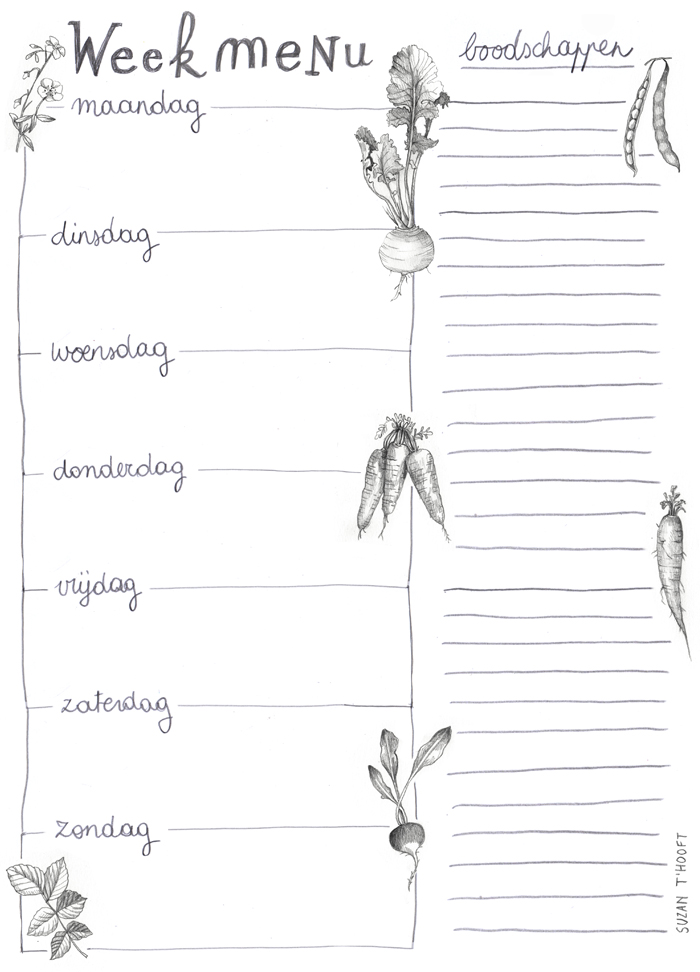 Week meNu
boodschappen
maandag
dinsdag
woensdag
donderdag
vrijdag
zaterdag
zondag
SUZAN T'HOOFT